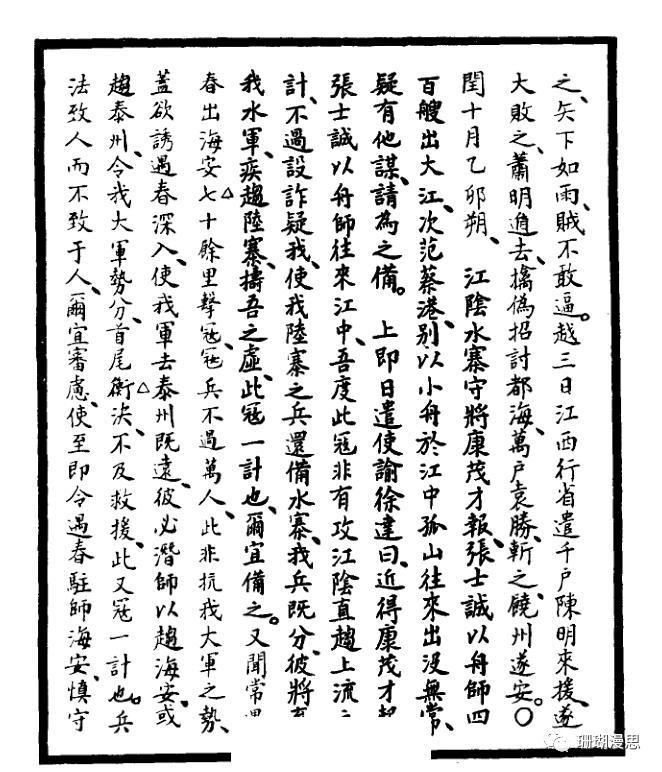 之、矢下如雨、賊不敢逼。越三日江西行省遣千戶陳明來援、遂
大敗之、蕭明遁去、擒偽招討都海、萬戶袁勝、斬之、饒州遂安。○
閏十月乙卯朔、江陰水寨守將康茂才報、張士誠以舟師四
百艘出大江、次范蔡港、別以小舟於江中孤山往來出沒無常、
疑有他謀、請為之備。上即日遣使諭徐達曰、近得康茂才
張士誠以舟師往來江中、吾度此寇非有攻江陰直趨上流
計、不過設詐疑我、使我陸寨之兵還備水寨、我兵既分、彼將
我水軍、疾趨陸寨、擣吾之虛、此寇一計也、爾宜備之。又聞常
春出海安七十餘里擊寇、寇兵不過萬人、此非抗我大軍之勢、
蓋欲誘遇春深入、使我軍去泰州既遠、彼必潛師以趨海安、或
趨泰州、令我大軍勢分、首尾衡決、不及救援、此又寇一計也。兵
法致人而不致于人、爾宜審慮、使至即令遇春駐師海安、慎守
珊瑚漫思